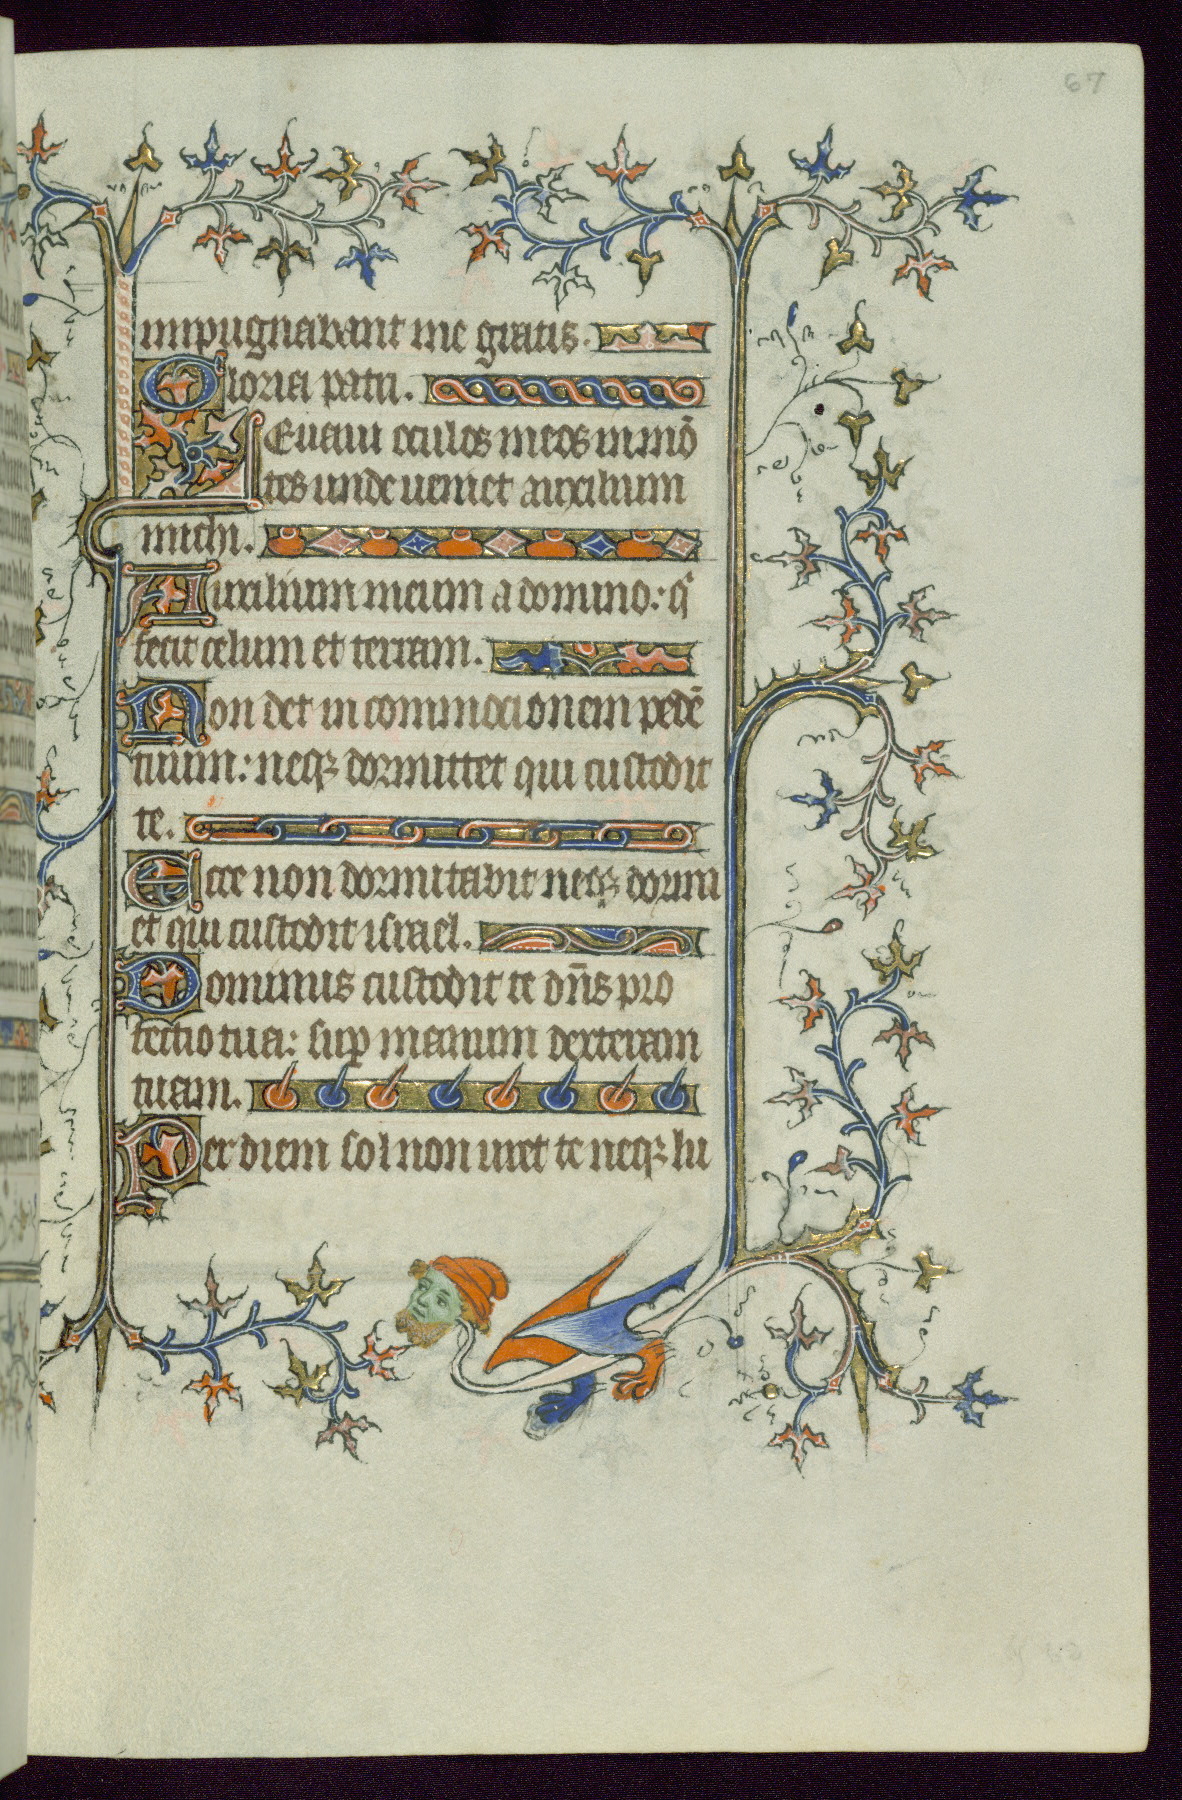 67
impugnabant me gratis.
Gloria patri.
Leuaui oculos meos in mō
tes unde ueniet auxilium
michi.
Auxilium meum a domino: q
fecit celum et terram.
Non det in commocionem pedē
tuum: neqꝫ dormittet qui custodit
te.
Ecce non dormitabit neqꝫ dormi
et qui custodit israel.
Dominus custodit te dn̄s pro
tectio tua: suꝑ manum dexteram
tuam.
Per diem sol non uret te neqꝫ lu